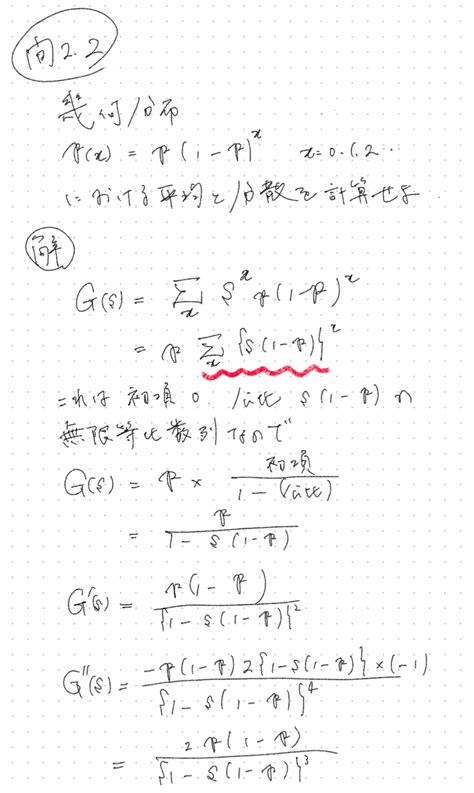 問2.2
幾何分布
p(x) = p(1-p)^x x=0.1.2…
における平均と分散を計算せよ
解
G(s) = Σ_x s^x p(1-p)^x
= p Σ_x {s(1-p)}^x
これは初項0. 公比 s(1-p)の
無限等比数列なので
G(s) = p × 初項/(1-(公比))
= p/(1-s(1-p))
G'(s) = p(1-p)/{1-s(1-p)}^2
G''(s) = -p(1-p)2{1-s(1-p)}×(-1)/{1-s(1-p)}^4
= 2p(1-p)/{1-s(1-p)}^3